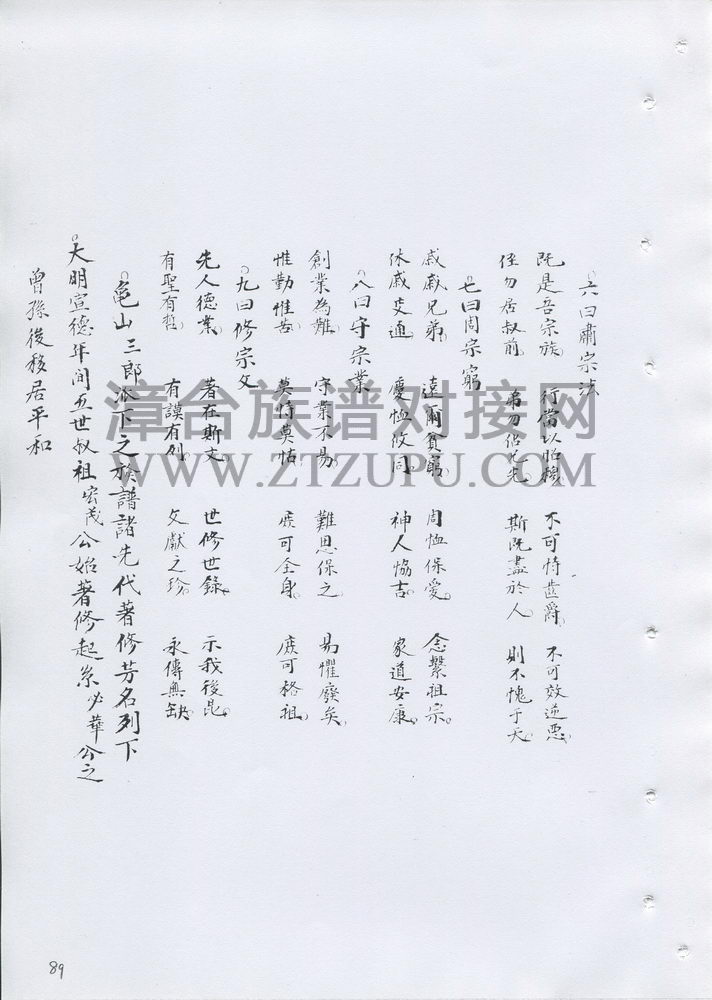 六曰肅宗法
既是吾宗族 行當以怡穆 不可恃齒爵 不可效逆惡
侄勿居叔前 弟勿佔兄先 斯既盡於人 則不愧于天
七曰周宗窮
戚戚兄弟 遠爾貧窮 周恤保愛 念繫祖宗
休戚交通 慶恤攸同 神人恊吉 家道安康
八曰守宗業
創業為難 守業不易 難思保之 易懼廢矣
惟勤惟苦 莫恃莫怙 庶可全身 庶可格祖
九曰修宗文
先人德業 著在斯文 世修世錄 示我後昆
有聖有哲 有謨有列 文獻之珍 永傳無缺
龟山三郎派下之族譜諸先代著修芳名列下
大明宣德年间五世叔祖宏茂公始著修起系必華公之
曾孫後移居平和
89
漳台族谱对接网
WWW.ZTZUPU.COM